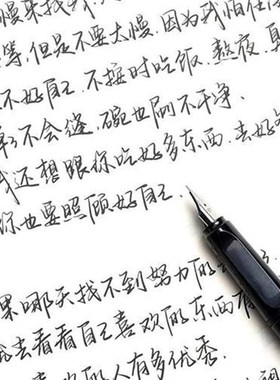 慢来找我
等,但是不要太慢,因为我怕
不好自己,不按时吃饭,熬夜,真
不会缝,碗也刷不干净.
我还想跟你吃好多东西,去好
你也要照顾好自己
果哪天找不到努力的
去看看自己喜欢的东西有
的人有多优秀.